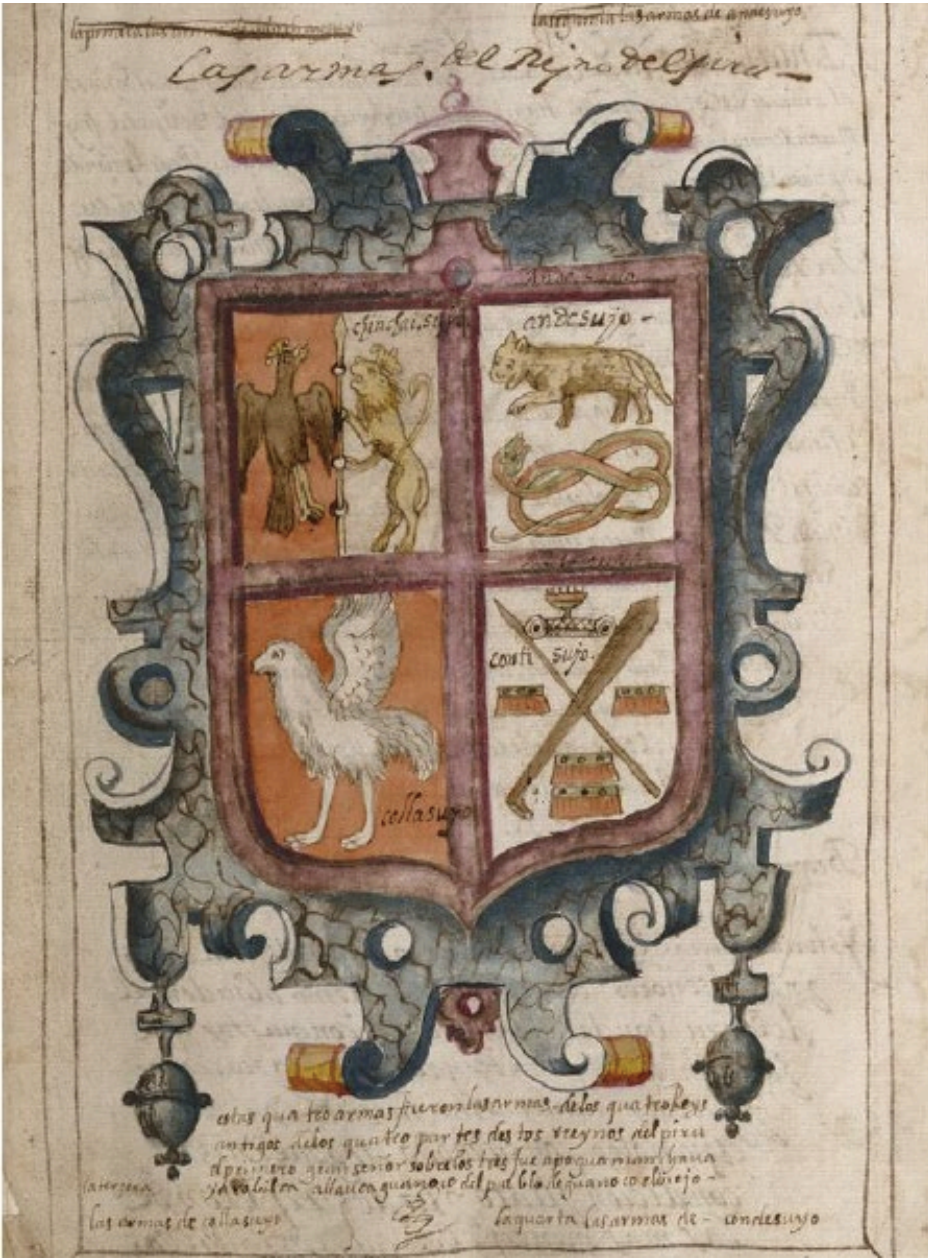 la primera las armas de
la segunda las armas de andesuyo
Las armas. del Reyno del piru —
chinchai suyo
andesuyo -
conti suyo.
collasuyo
estas quatro armas fueron las armas de los quatro Reys
antigos de los quatro partes destos rreynos del piru
el primero gran señor sobre los tres fue apo guaman chaua
yarobilca allauca guanoco del pueblo de guanoco el biejo -
la tersera
las armas de collasuyo
la quarta las armas de - condesuyo